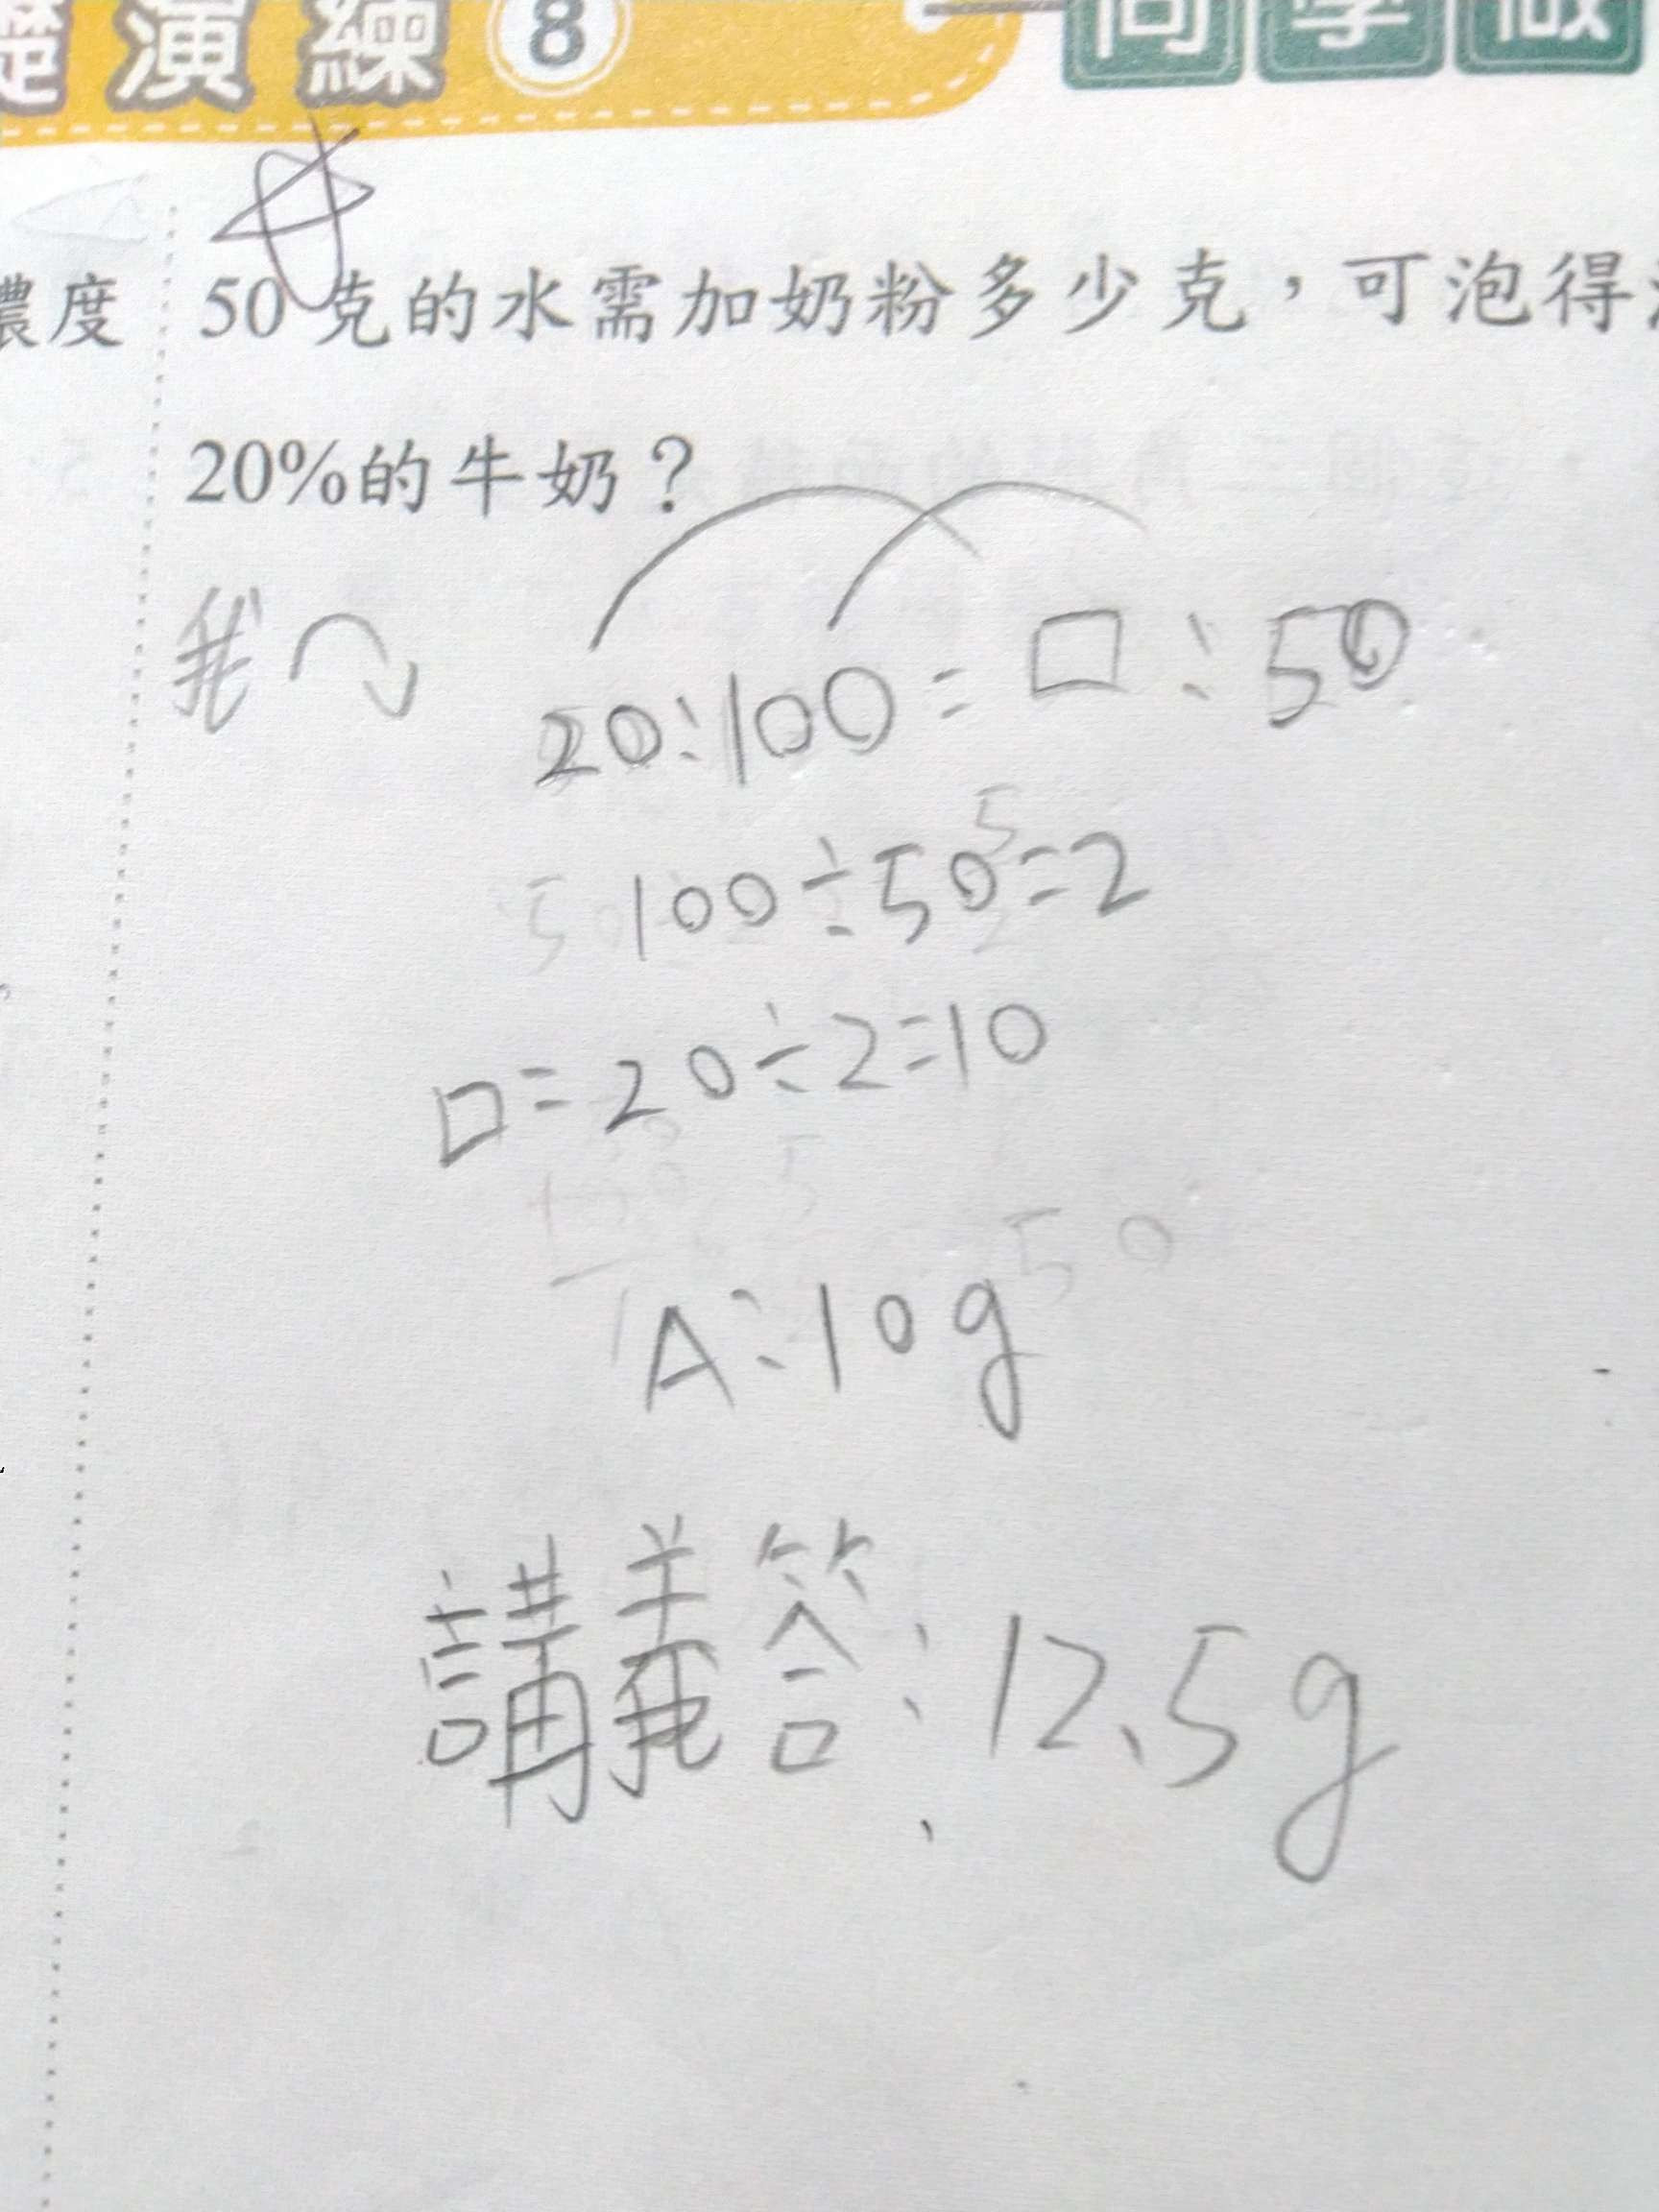 礎演練8
同學做
濃度
50克的水需加奶粉多少克，可泡得
20%的牛奶？
我
20:100=□:50
100÷50=2
□=20÷2=10
A:10g
講義答:12.5g